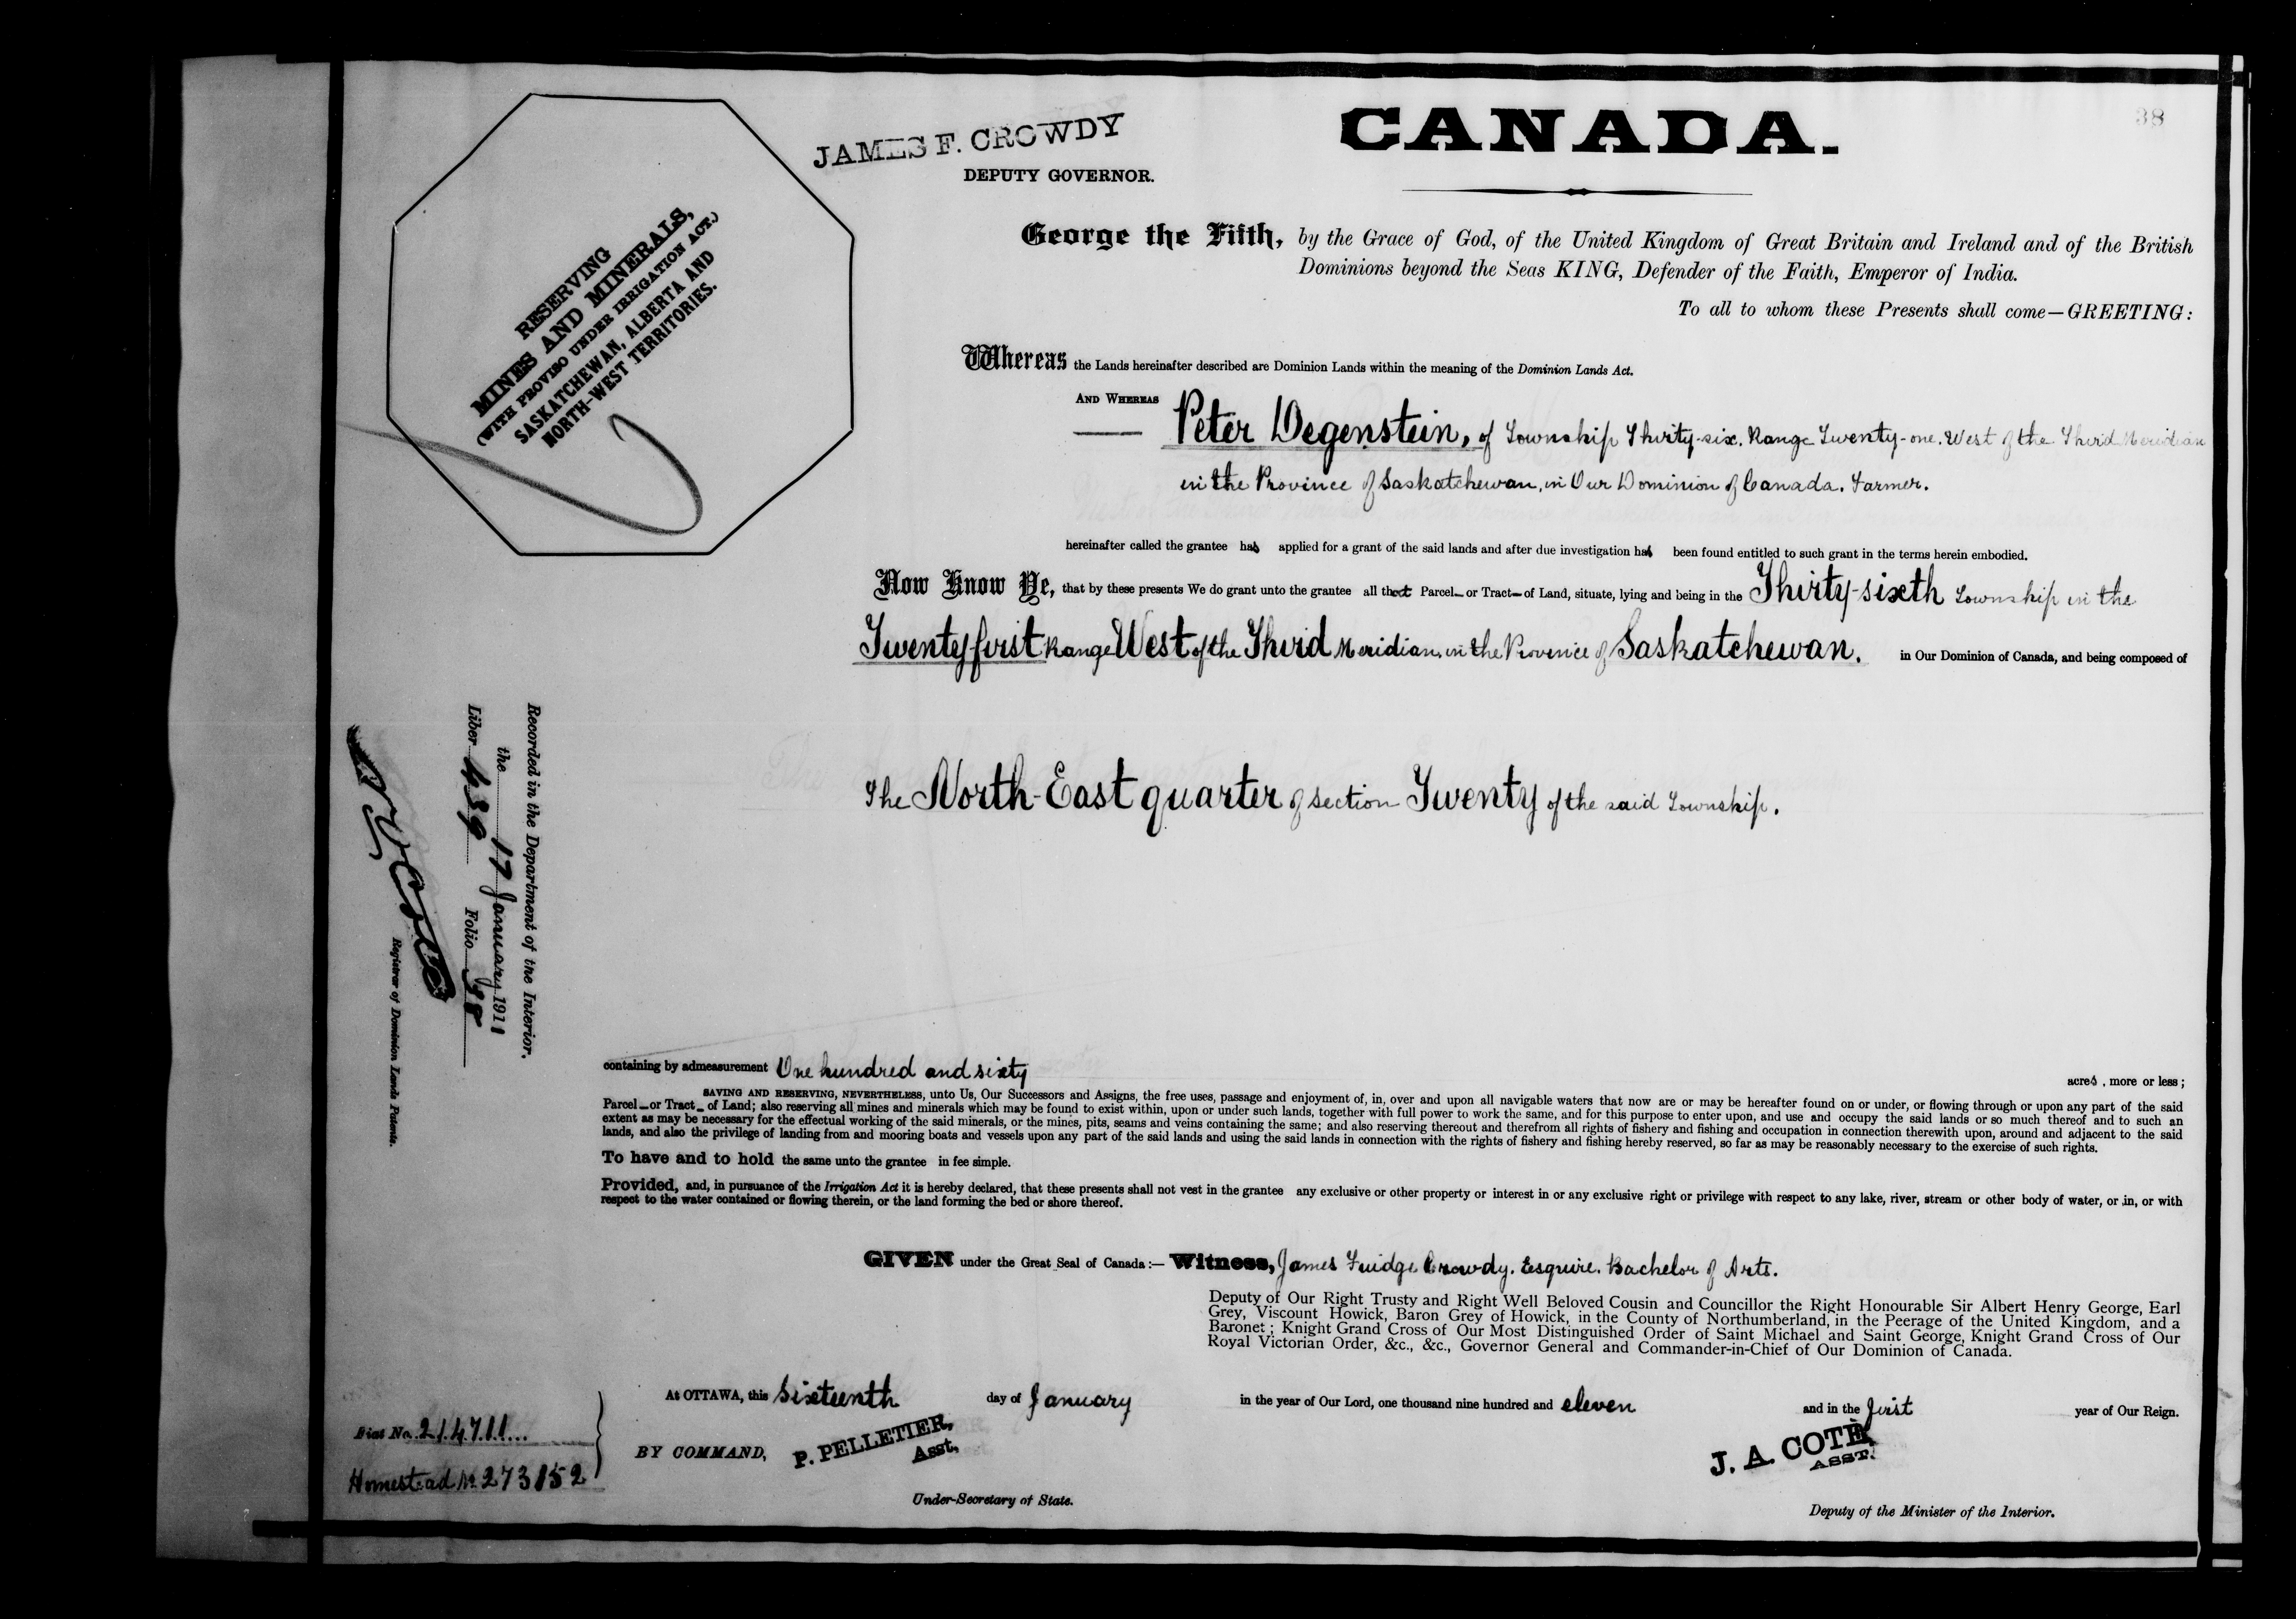 38
JAMES F. CROWDY
DEPUTY GOVERNOR.
CANADA.
RESERVING
MINES AND MINERALS,
(WITH PROVISO UNDER IRRIGATION ACT.)
SASKATCHEWAN, ALBERTA AND
NORTH-WEST TERRITORIES.
George the Fifth, by the Grace of God, of the United Kingdom of Great Britain and Ireland and of the British
Dominions beyond the Seas KING, Defender of the Faith, Emperor of India.
To all to whom these Presents shall come—GREETING:
Whereas the Lands hereinafter described are Dominion Lands within the meaning of the Dominion Lands Act.
AND WHEREAS
Peter Degenstein, of Township Thirty-six, Range Twenty-one, West of the Third Meridian
in the Province of Saskatchewan, in Our Dominion of Canada. Farmer.
hereinafter called the grantee has applied for a grant of the said lands and after due investigation has been found entitled to such grant in the terms herein embodied.
Now Know Ye, that by these presents We do grant unto the grantee all that Parcel or Tract of Land, situate, lying and being in the Thirty-sixth Township in the
Twenty first Range West of the Third Meridian, in the Province of Saskatchewan. in Our Dominion of Canada, and being composed of
The North-East quarter of section Twenty of the said Township.
Recorded in the Department of the Interior.
the 17 January 1911
Liber 439 Folio 38
Registrar of Dominion Lands Patents.
containing by admeasurement One hundred and sixty acres, more or less;
SAVING AND RESERVING, NEVERTHELESS, unto Us, Our Successors and Assigns, the free uses, passage and enjoyment of, in, over and upon all navigable waters that now are or may be hereafter found on or under, or flowing through or upon any part of the said
Parcel or Tract of Land; also reserving all mines and minerals which may be found to exist within, upon or under such lands, together with full power to work the same, and for this purpose to enter upon, and use and occupy the said lands or so much thereof and to such an
extent as may be necessary for the effectual working of the said minerals, or the mines, pits, seams and veins containing the same; and also reserving thereout and therefrom all rights of fishery and fishing and occupation in connection therewith upon, around and adjacent to the said
lands, and also the privilege of landing from and mooring boats and vessels upon any part of the said lands and using the said lands in connection with the rights of fishery and fishing hereby reserved, so far as may be reasonably necessary to the exercise of such rights.
To have and to hold the same unto the grantee in fee simple.
Provided, and, in pursuance of the Irrigation Act it is hereby declared, that these presents shall not vest in the grantee any exclusive or other property or interest in or any exclusive right or privilege with respect to any lake, river, stream or other body of water, or in, or with
respect to the water contained or flowing therein, or the land forming the bed or shore thereof.
GIVEN under the Great Seal of Canada:— Witness, James Fuidge Crowdy, Esquire, Bachelor of Arts.
Deputy of Our Right Trusty and Right Well Beloved Cousin and Councillor the Right Honourable Sir Albert Henry George, Earl
Grey, Viscount Howick, Baron Grey of Howick, in the County of Northumberland, in the Peerage of the United Kingdom, and a
Baronet; Knight Grand Cross of Our Most Distinguished Order of Saint Michael and Saint George, Knight Grand Cross of Our
Royal Victorian Order, &c., &c., Governor General and Commander-in-Chief of Our Dominion of Canada.
At OTTAWA, this Sixteenth day of January in the year of Our Lord, one thousand nine hundred and eleven and in the first year of Our Reign.
Fiat No. 214711
Homestead No 273152
BY COMMAND, P. PELLETIER,
Asst.
Under-Secretary of State.
J. A. COTÉ
ASST.
Deputy of the Minister of the Interior.